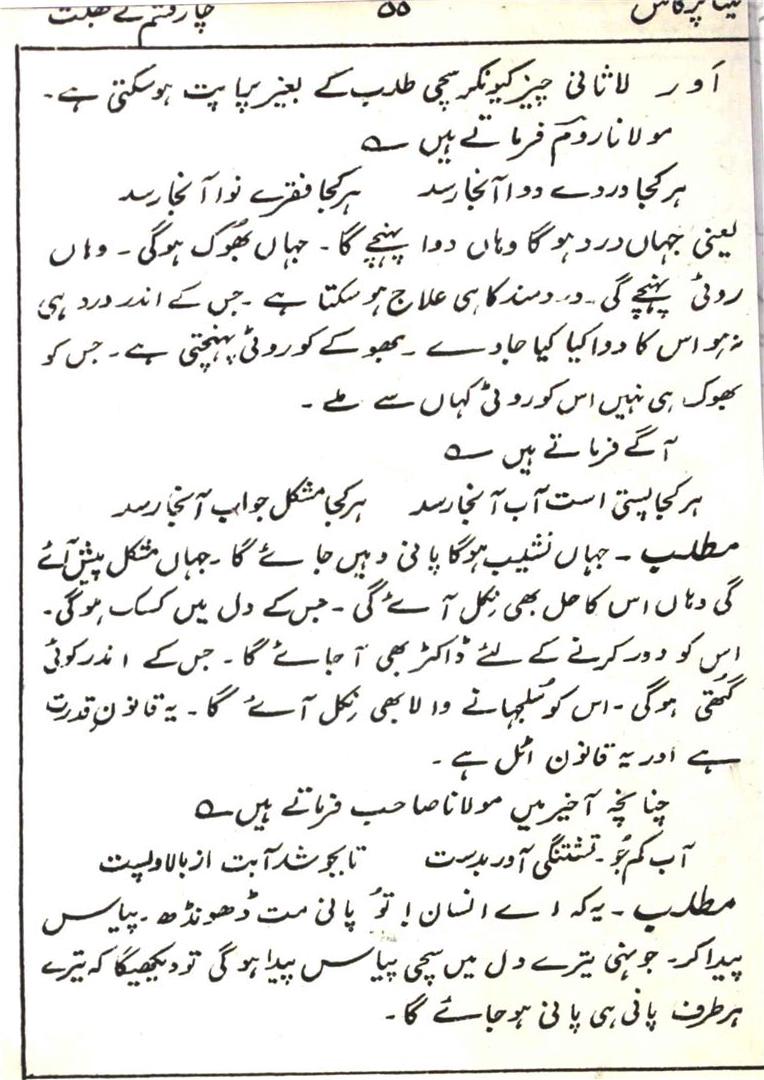 چار قسم کے بھگت ۵۵ گیتا پرکاش
اَور لاثانی چیز کیونکر سچی طلب کے بغیر پراپت ہوسکتی ہے۔
مولانا رومؔ فرماتے ہیں ؎
ہر کجا دردے دوا آنجا رسد ہر کجا فقرے نوا آنجا رسد
یعنی جہاں درد ہو گا وہاں دوا پہنچے گا۔ جہاں بھُوک ہوگی۔ وہاں
روٹی پہنچے گی۔ دردمند کا ہی علاج ہو سکتا ہے۔ جس کے اندر درد ہی
نہ ہو اس کا دوا کیا کیا جاوے۔ بھوکے کو روٹی پہنچتی ہے۔ جس کو
بھوک ہی نہیں اس کو روٹی کہاں سے ملے۔
آگے فرماتے ہیں ؎
ہر کجا پستی است آب آنجا رسد ہر کجا مشکل جواب آنجا رسد
مطلب۔ جہاں نشیب ہوگا پانی وہیں جائے گا۔ جہاں مشکل پیش آئے
گی وہاں اس کا حل بھی نِکل آئے گی۔ جس کے دل میں کسک ہوگی۔
اس کو دور کرنے کے لئے ڈاکٹر بھی آ جائے گا۔ جس کے اندر کوئی
گُتھی ہوگی۔ اس کو سُلجھانے والا بھی نِکل آئے گا۔ یہ قانونِ قدرت
ہے اور یہ قانون اٹل ہے۔
چنانچہ آخیر میں مولانا صاحب فرماتے ہیں ؎
آب کم جُو۔ تشنگی آور بدست تا بجوشد آبت از بالا و پست
مطلب۔ یہ کہ اے انسان! تُو پانی مت ڈھونڈھ۔ پیاس
پیدا کر۔ جونہی تیرے دل میں سچی پیاس پیدا ہو گی تو دیکھیگا کہ تیرے
ہر طرف پانی ہی پانی ہو جائے گا۔